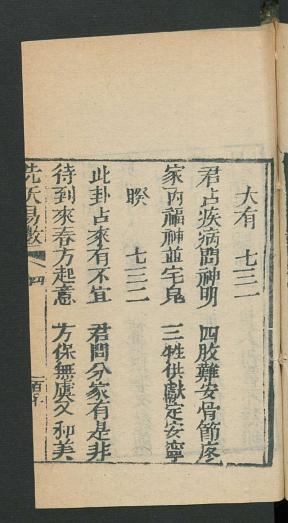 大有 七三一
君占疾病問神明 四肢難安骨節疼
家內福神並宅鬼 三牲供獻定安寧
睽 七三二
此卦占來有不宜 君問分家有是非
待到來春方起意 方保無虞久和美
先天易數 四